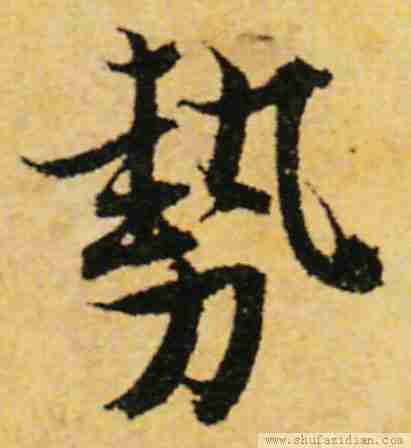 勢
www.shufazidian.com